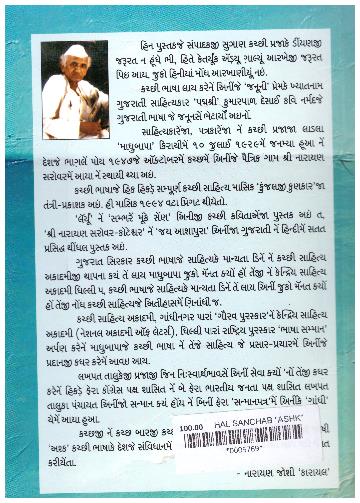 હિન પુસ્તકજે સંપાદકજી સુઞાણ કચ્છી પ્રજાકે ડીંયણજી
જરૂરત ન હૂંધે ભી, હિતે કેતરીયૂં એડયૂ ગાલ્યૂં આરખેજી જરૂરત
પિઇ આય, જુકો હિનીયાં મોંધ આરખાણીયૂં નઇ.
કચ્છી ભાષા લાય કરેને અિનીંજે 'જનૂની' પ્રેમકે ખ્યાતનામ
ગુજરાતી સાહિત્યકાર 'પદ્મશ્રી' કુમારપાળ દેસાઈ કવિ નર્મદજે
ગુજરાતી ભાષા જે જનૂનસેં ભેટાયોં અઇનોં.
સાહિત્યકારેંજા, પત્રકારેંજા નેં કચ્છી પ્રજાજા લાડલા
'માધુબાપા' કિરાચીમેં ૧૦ જુલાઈ ૧૯૨૯મેં જનમ્યા હૂઆ નેં
દેશજે ભાગલેં પોય ૧૯૪૭જે ઑક્ટોબરમેં કચ્છમેં અિનીંજે પૈત્રિક ગામ શ્રી નારાયણ
સરોવરમેં આયા નેં સ્થાયી થ્યા અઇં.
કચ્છી ભાષાજે હિક હિકડે સમ્પૂર્ણ કચ્છી સાહિત્ય માસિક 'કુંજલજી કુણકાર'જા
તંત્રી-પ્રકાશક અઇં. હી માસિક ૧૯૯૪ વટા પ્રિગટ થીયેતો.
'લૅરૂં' નેં 'સમ્ભરેં મૂંકે સૅણ' અિનીજી કચ્છી કવિતાએંજા પુસ્તક અઇં ત,
'શ્રી નારાયણ સરોવર-કોટેશ્વર' નેં 'જય આશાપુરા' અિનીંજા ગુજરાતી નેં હિન્દીમેં સતત
પ્રસિદ્ધ થીંધલ પુસ્તક અઇં.
ગુજરાત સિરકાર કચ્છી ભાષાજે સાહિત્યકે માન્યતા ડિનેં નેં કચ્છી સાહિત્ય
અકાદમીજી થાપના કયેં તેં લાય માધુબાપા જુકો મૅનત કર્યોં હોં તેંજી નેં કેન્દ્રિય સાહિત્ય
અકાદમી ધિલ્લી પ, કચ્છી ભાષાજે સાહિત્યકે માન્યતા ડિનેં તેં લાય અિનીં જુકો મૅનત કર્યોં
હોં તેંજી નોંધ કચ્છી સાહિત્યજે અિતીહાસમેં ગિનાંધી જ.
કચ્છી સાહિત્ય અકાદમી, ગાંધીનગર પારાં 'ગૌરવ પુરસ્કાર'નેં કેન્દ્રિય સાહિત્ય
અકાદમી (નેશનલ અકાદમી ઑફ લેટર્સ), ધિલ્લી પારાં રાષ્ટ્રિય પુરસ્કાર 'ભાષા સમ્માન'
અર્પણ કરેનેં માધુબાપાજે કચ્છી ભાષા નેં તેંજે સાહિત્ય જે પ્રસાર-પ્રચારમેં અિનીંજે
પ્રદાનજી કધર કરેમેં આવઇ આય.
લખપત તાલુકેજી પ્રજાજી જિન નિઃસ્વાર્થભાવસેં અિનીં સેવા કર્યોં 'નોં તેંજી કધર
કરેનેં હિકડે ફેરા કોંગ્રેસ પક્ષ શાસિત નેં બે ફેરા ભારતીય જનતા પક્ષ શાસિત લખપત
તાલુકા પંચાયત અિનીંજો સન્માન કર્યોં હોંય નેં બિનીં ફેરા 'સન્માનપત્ર'મેં અિનીંકે 'ગાંધી'
ચેમેં આયા હૂઆ.
કચ્છજી નેં કચ્છ બારજી કચ્છી
'અશ્ક' કચ્છી ભાષાકે દેશજે સંવિધાનમેં
કરીયેંતા.
- નારાયણ જોશી 'કારાયલ'
100.00 HAL SANCHAB "ASHK"
*D005769*